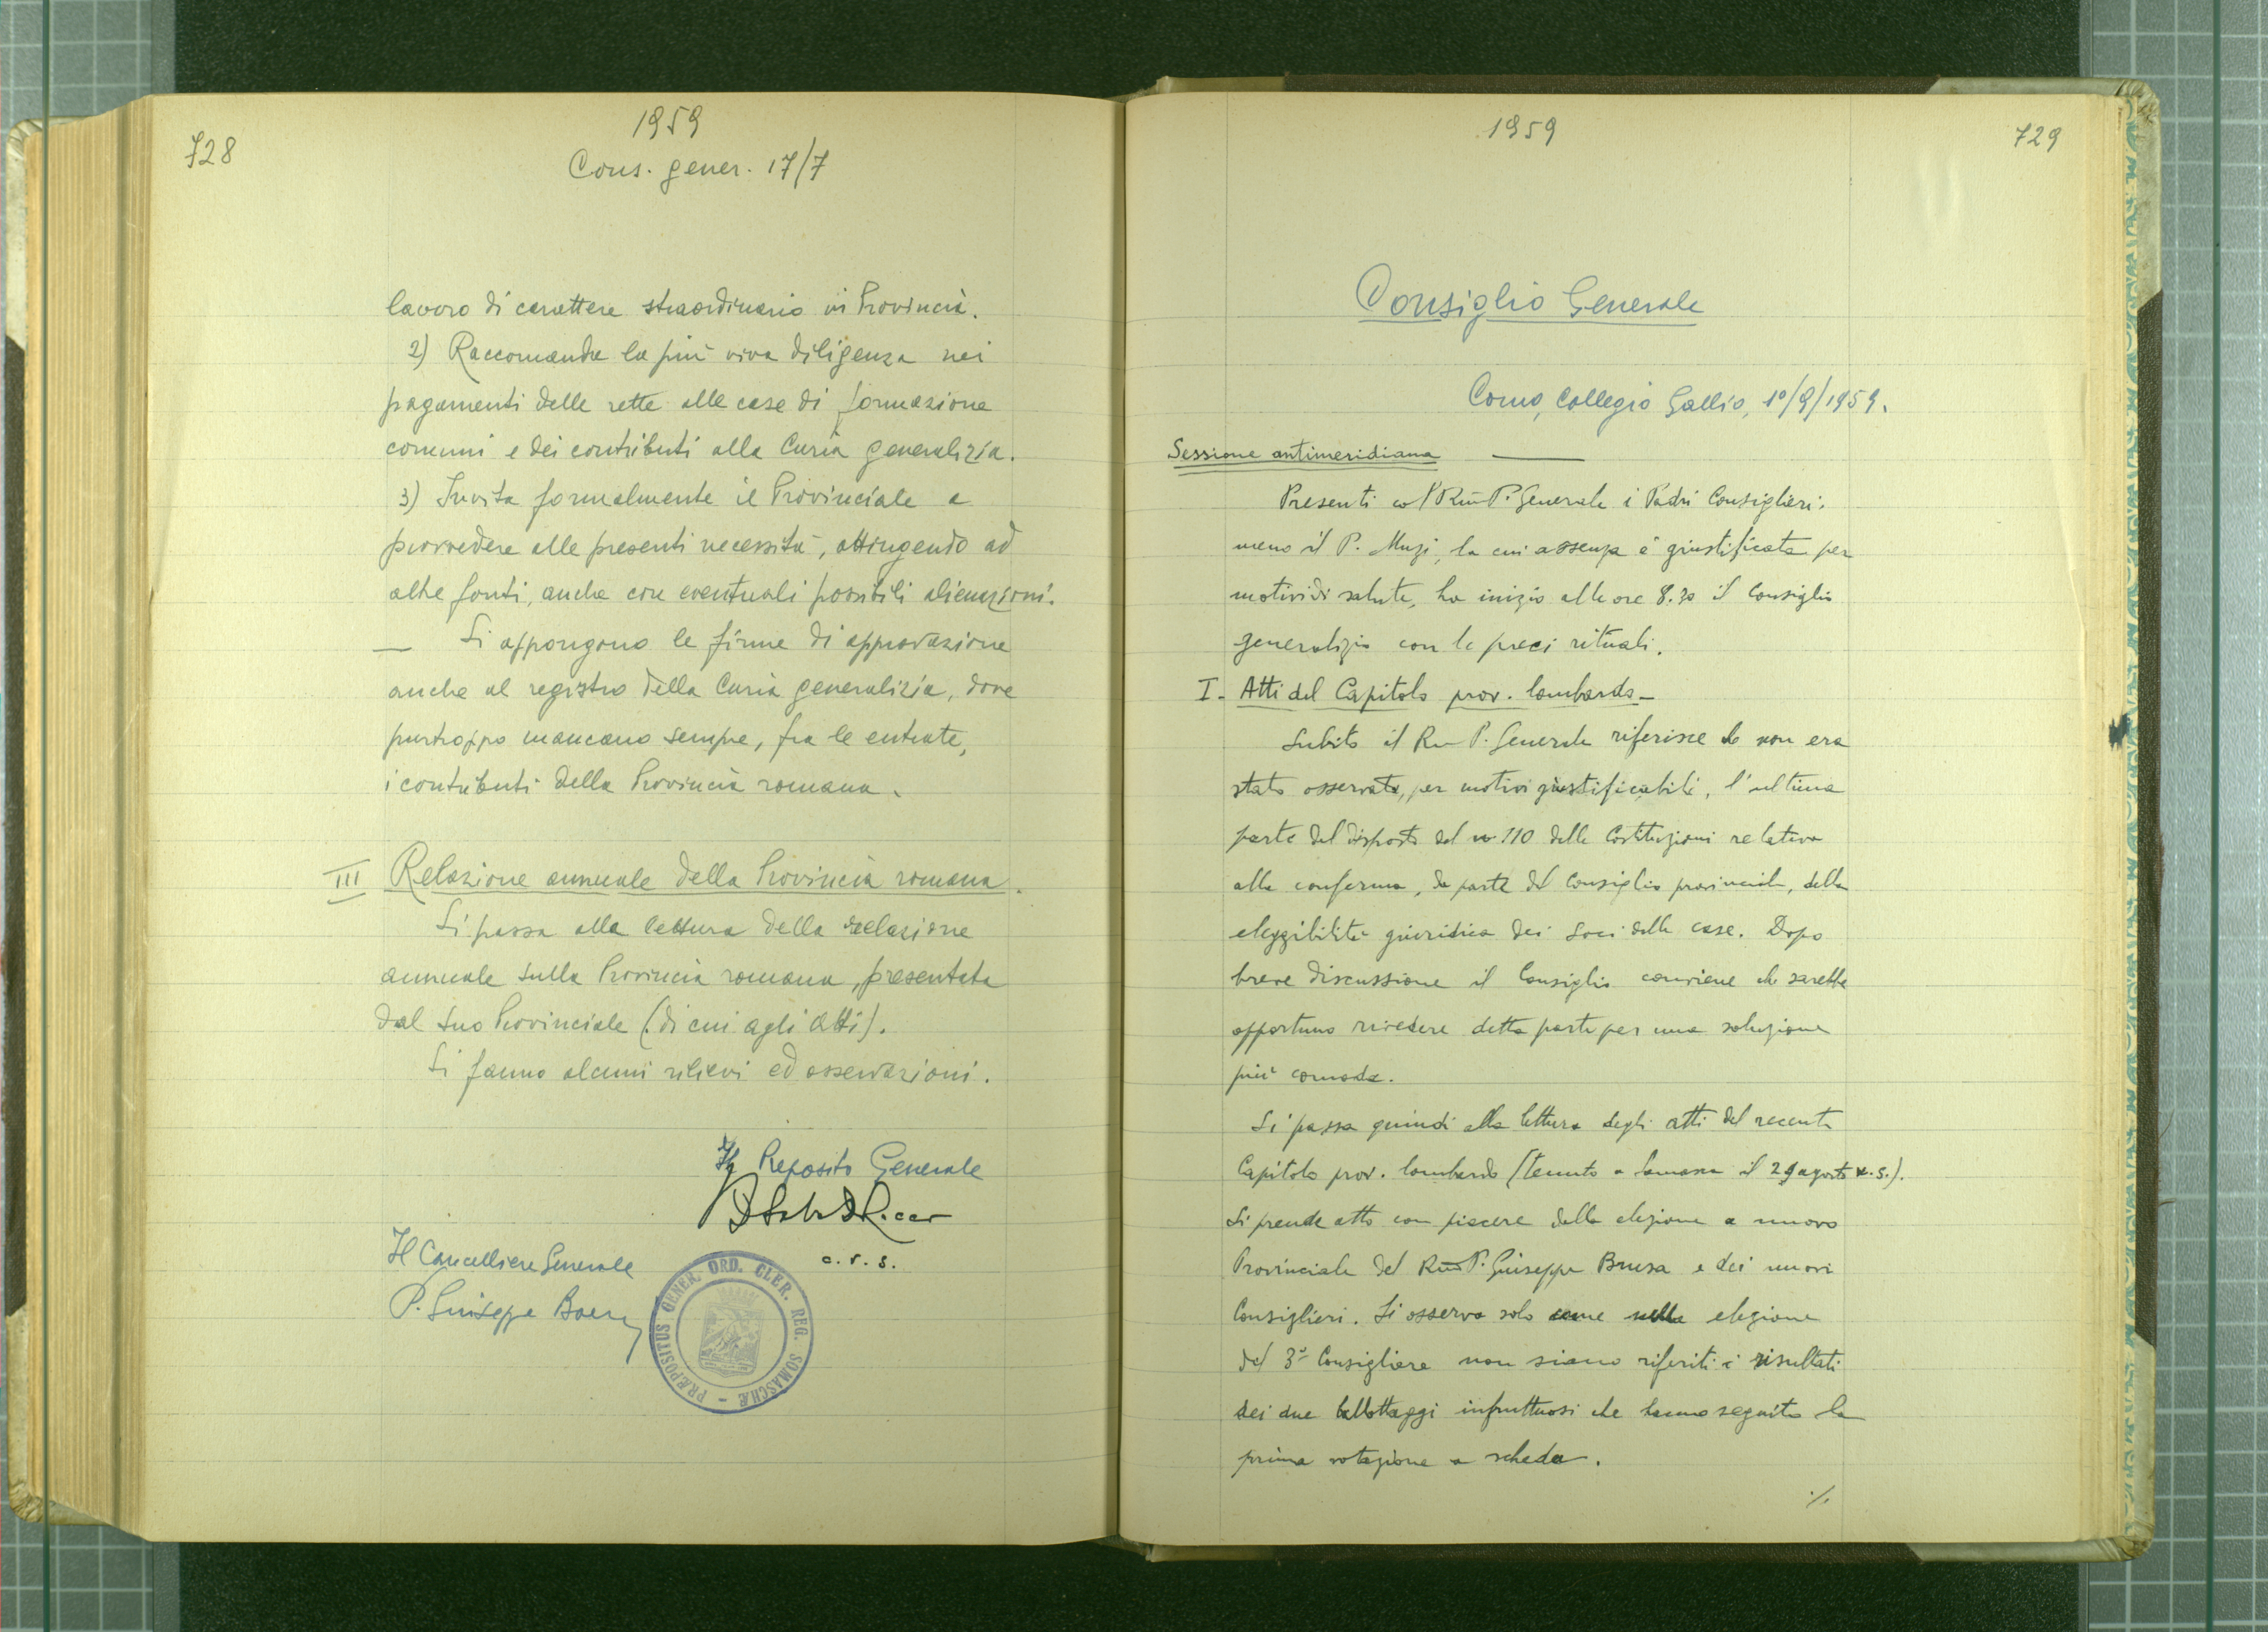 728
1959
Cons. gener. 17/7
lavoro di carattere straordinario in Provincia.
2) Raccomanda la più viva diligenza nei
pagamenti delle rette alle case di formazione
comuni e dei contributi alla Curia generalizia.
3) Invita formalmente il Provinciale a
provvedere alle presenti necessità, attingendo ad
altre fonti, anche con eventuali possibili alienazioni.
— Si appongono le firme di approvazione
anche al registro della Curia generalizia, dove
purtroppo mancano sempre, fra le entrate,
i contributi della Provincia romana.
III Relazione annuale della Provincia romana.
Si passa alla lettura della relazione
annuale sulla Provincia romana, presentata
dal suo Provinciale (di cui agli atti).
Si fanno alcuni rilievi ed osservazioni.
Il Preposito Generale
c.r.s.
Il Cancelliere Generale
P. Giuseppe
PRÆPOSITUS GENER. ORD. CLER. REG. SOMASCHÆ -
1959
729
Consiglio Generale
Como, Collegio Gallio, 1º/9/1959.
Sessione antimeridiana —
Presenti col Rm̃o P. Generale i Padri Consiglieri,
meno il P. Muzi, la cui assenza è giustificata per
motivi di salute, ha inizio alle ore 8.30 il Consiglio
generalizio con le preci rituali.
I - Atti del Capitolo prov. lombardo -
Subito il Rm̃o P. Generale riferisce che non era
stato osservata, per motivi giustificabili, l'ultima
parte del disposto del nº 110 delle Costituzioni relativa
alla conferma, da parte del Consiglio provinciale, della
eleggibilità giuridica dei Soci delle case. Dopo
breve discussione il Consiglio conviene che sarebbe
opportuno rivedere detta parte per una soluzione
più comoda.
Si passa quindi alla lettura degli atti del recente
Capitolo prov. lombardo (tenuto a Somasca il 29 agosto u.s.).
Si prende atto con piacere della elezione a nuovo
Provinciale del Rm̃o P. Giuseppe Brusa e dei nuovi
Consiglieri. Si osserva solo come nella elezione
del 3º Consigliere non siano riferiti i risultati
dei due ballottaggi infruttuosi che hanno seguito la
prima votazione a scheda.
./.